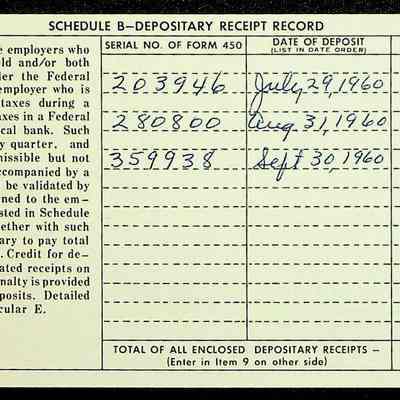 SCHEDULE B—DEPOSITARY RECEIPT RECORD
e employers who
ld and/or both
der the Federal
employer who is
taxes during a
axes in a Federal
cal bank. Such
y quarter, and
missible but not
ccompanied by a
be validated by
ned to the em-
sted in Schedule
ether with such
ary to pay total
. Credit for de-
ated receipts on
nalty is provided
posits. Detailed
cular E.
SERIAL NO. OF FORM 450
DATE OF DEPOSIT
(LIST IN DATE ORDER)
203946 July 29, 1960
280800 Aug 31, 1960
359938 Sept 30, 1960
TOTAL OF ALL ENCLOSED DEPOSITARY RECEIPTS –
(Enter in Item 9 on other side)